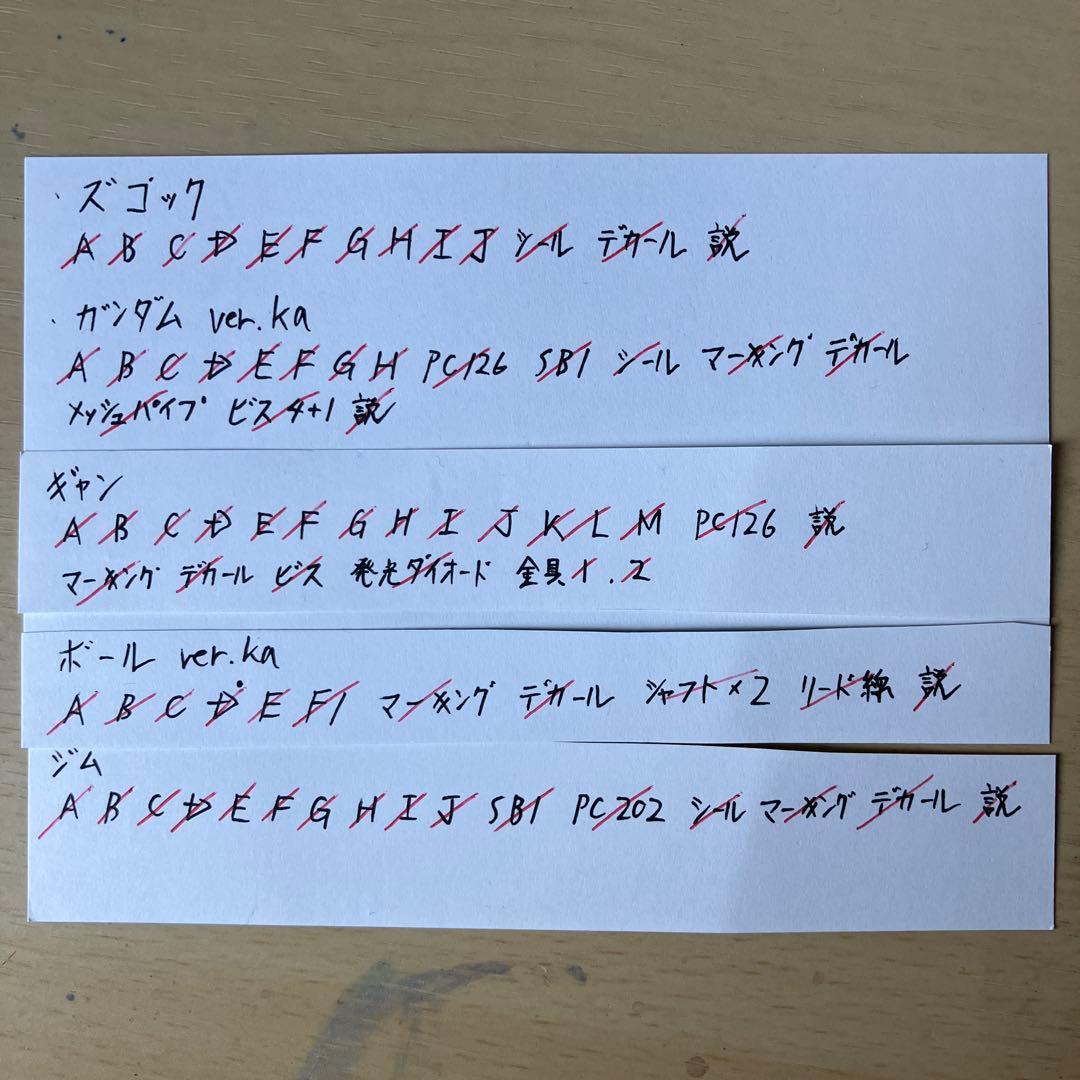 ・ズゴック
A B C D E F G H I J シール デカール 説
・ガンダム ver.ka
A B C D E F G H PC126 SB1 シール マーキング デカール
メッシュパイプ ビス4+1 説
ギャン
A B C D E F G H I J K L M PC126 説
マーキング デカール ビス 発光ダイオード 金具1.2
ボール ver.ka
A B C D E F1 マーキング デカール シャフト×2 リード線 説
ジム
A B C D E F G H I J SB1 PC202 シール マーキング デカール 説